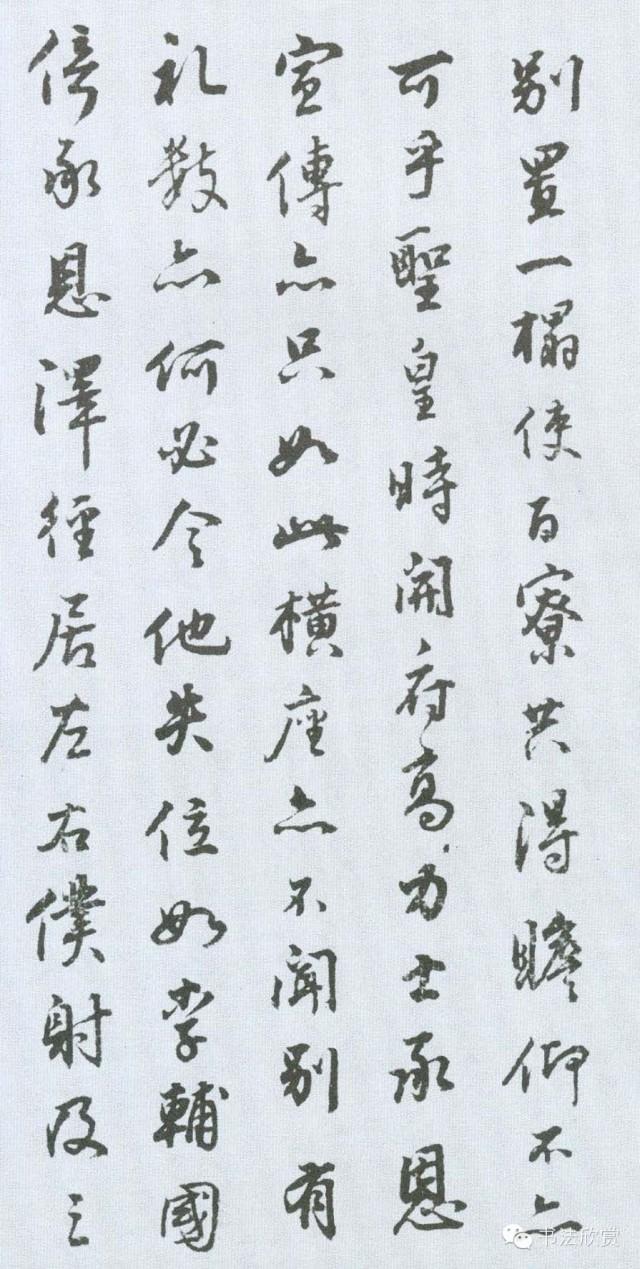 别置一榻使百寮共得瞻仰不亦
可乎聖皇時開府高力士承恩
宣傳亦只如此横座亦不聞别有
礼数亦何必令他失位如李輔國
倚承恩澤徑居左右僕射及三
书法欣赏